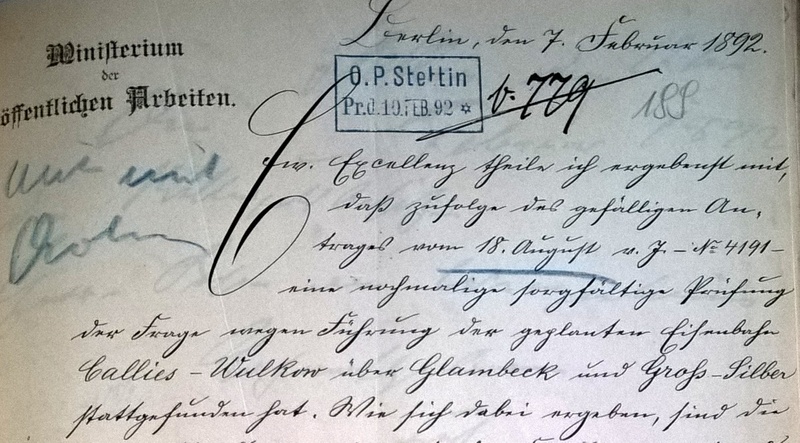 Ministerium
der
öffentlichen Arbeiten.
Berlin, den 7. Februar 1892.
O.P. Stettin
Pr.d. 10. FEB. 92 *
779
188
Ew. Excellenz theile ich ergebenst mit,
daß zufolge des gefälligen An-
trages vom 18. August v. J. – No 4191 –
eine nochmalige sorgfältige Prüfung
der Frage wegen Führung der geplanten Eisenbahn
Callies – Wulkow über Glambeck und Groß-Silber
stattgefunden hat. Wie sich dabei ergeben, sind die